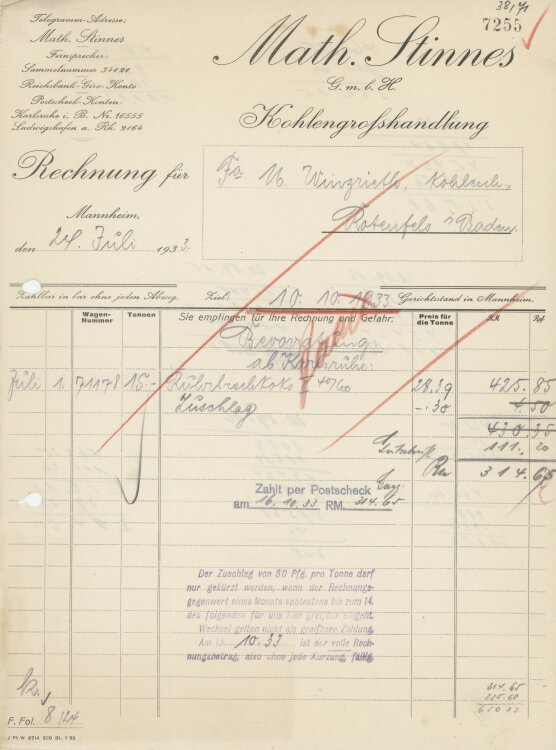 38/71
7255
Telegramm-Adresse:
Math. Stinnes
Fernsprecher:
Sammelnummer 34121
Reichsbank-Giro-Konto
Postscheck-Konten:
Karlsruhe i. B. Nr. 16555
Ludwigshafen a. Rh. 2164
Math. Stinnes
G. m. b. H.
Kohlengroßhandlung
Rechnung für
Fa
Kohlenh.,
Rotenfels i/Baden.
Mannheim,
den 24. Juli 1933.
Zahlbar in bar ohne jeden Abzug. Ziel: 10. 10. 1933. Gerichtsstand in Mannheim.
Wagen-Nummer Tonnen Sie empfingen für Ihre Rechnung und Gefahr: Preis für die Tonne RM Pf.
Bevorratung
ab Karlsruhe:
Juli 1. 71178 15.- Ruhrbrechkoks I 40/60 28.39 425.85
Zuschlag -.30 4.50
430.35
Gutschrift 111.20
RM 314.65
Zahlt per Postscheck
am 16.10.33 RM. 314.65
Der Zuschlag von 30 Pfg. pro Tonne darf
nur gekürzt werden, wenn der Rechnungs-
gegenwert eines Monats spätestens bis zum 14.
des folgenden für uns hier greifbar eingeht.
Wechsel gelten nicht als greifbare Zahlung.
Am 15. 10.33 ist der volle Rech-
nungsbetrag, also ohne jede Kürzung, fällig.
314.65
325.68
F. Fol. 8/24
J Ph W 9714 300 Bl. 1 33